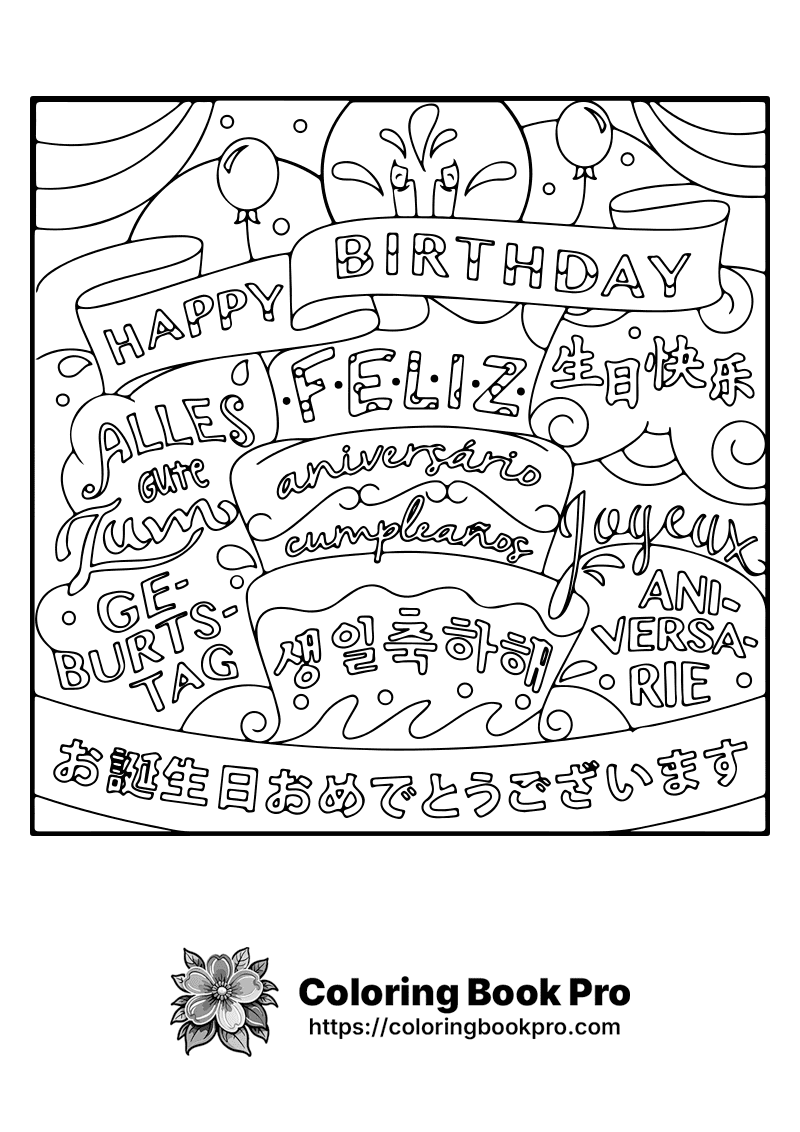 HAPPY
BIRTHDAY
FELIZ
生日快乐
ALLES
Gute
Zum
GE-
BURTS-
TAG
aniversário
cumpleaños
Joyeux
ANI-
VERSA-
RIE
생일축하해
お誕生日おめでとうございます
Coloring Book Pro
https://coloringbookpro.com